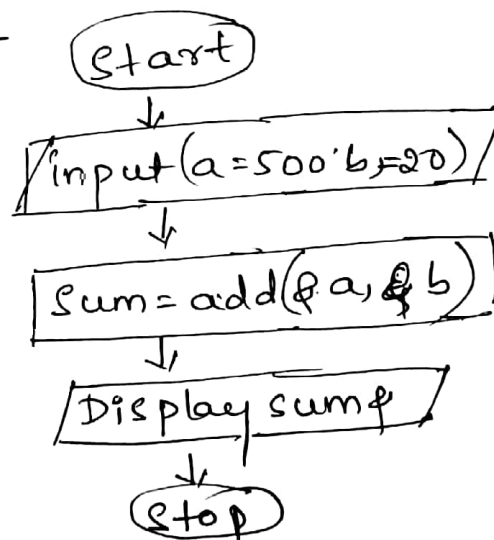 Start
input(a=500 b=20)
Sum = add(& a, & b)
Display sum &
Stop